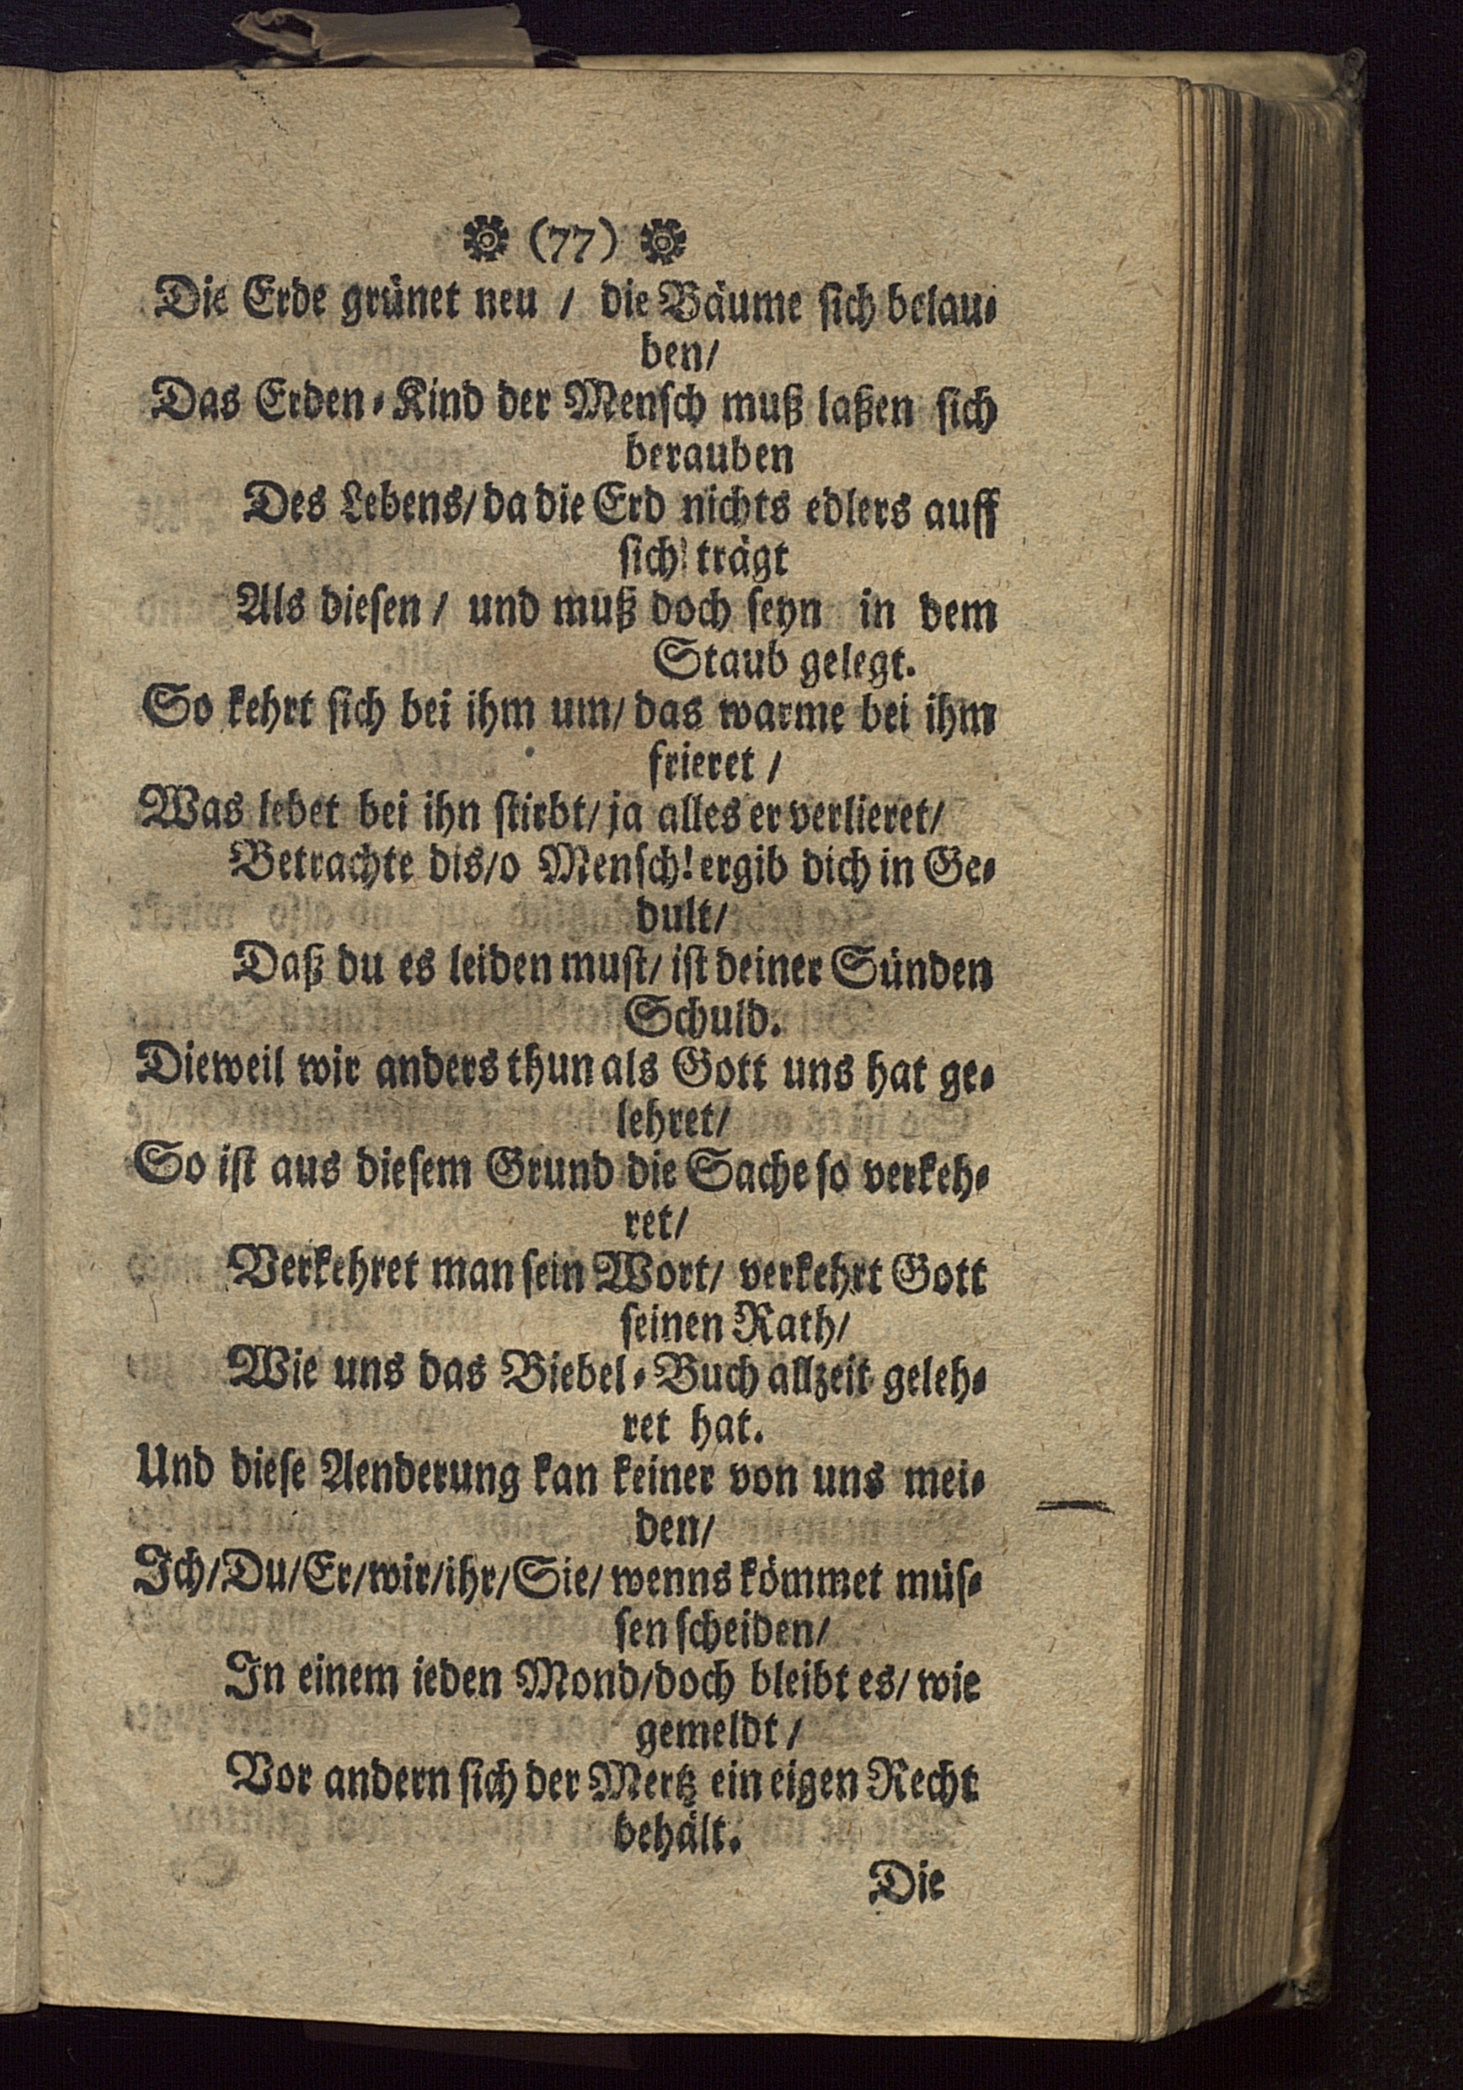 (77)
Die Erde grünet neu / die Bäume sich belau-
ben/
Das Erden-Kind der Mensch muß laßen sich
berauben
Des Lebens/ da die Erd nichts edlers auff
sich trägt
Als diesen / und muß doch seyn in dem
Staub gelegt.
So kehrt sich bei ihm um/ das warme bei ihm
frieret /
Was lebet bei ihn stirbt/ ja alles er verlieret/
Betrachte dis/o Mensch! ergib dich in Ge-
dult/
Daß du es leiden must/ ist deiner Sünden
Schuld.
Dieweil wir anders thun als Gott uns hat ge-
lehret/
So ist aus diesem Grund die Sache so verkeh-
ret/
Verkehret man sein Wort/ verkehrt Gott
seinen Rath/
Wie uns das Biebel-Buch allzeit geleh-
ret hat.
Und diese Aenderung kan keiner von uns mei-
den/
Ich/Du/Er/wir/ihr/Sie/ wenns kömmet müs-
sen scheiden/
In einem ieden Mond/doch bleibt es/ wie
gemeldt /
Vor andern sich der Mertz ein eigen Recht
behält.
Die